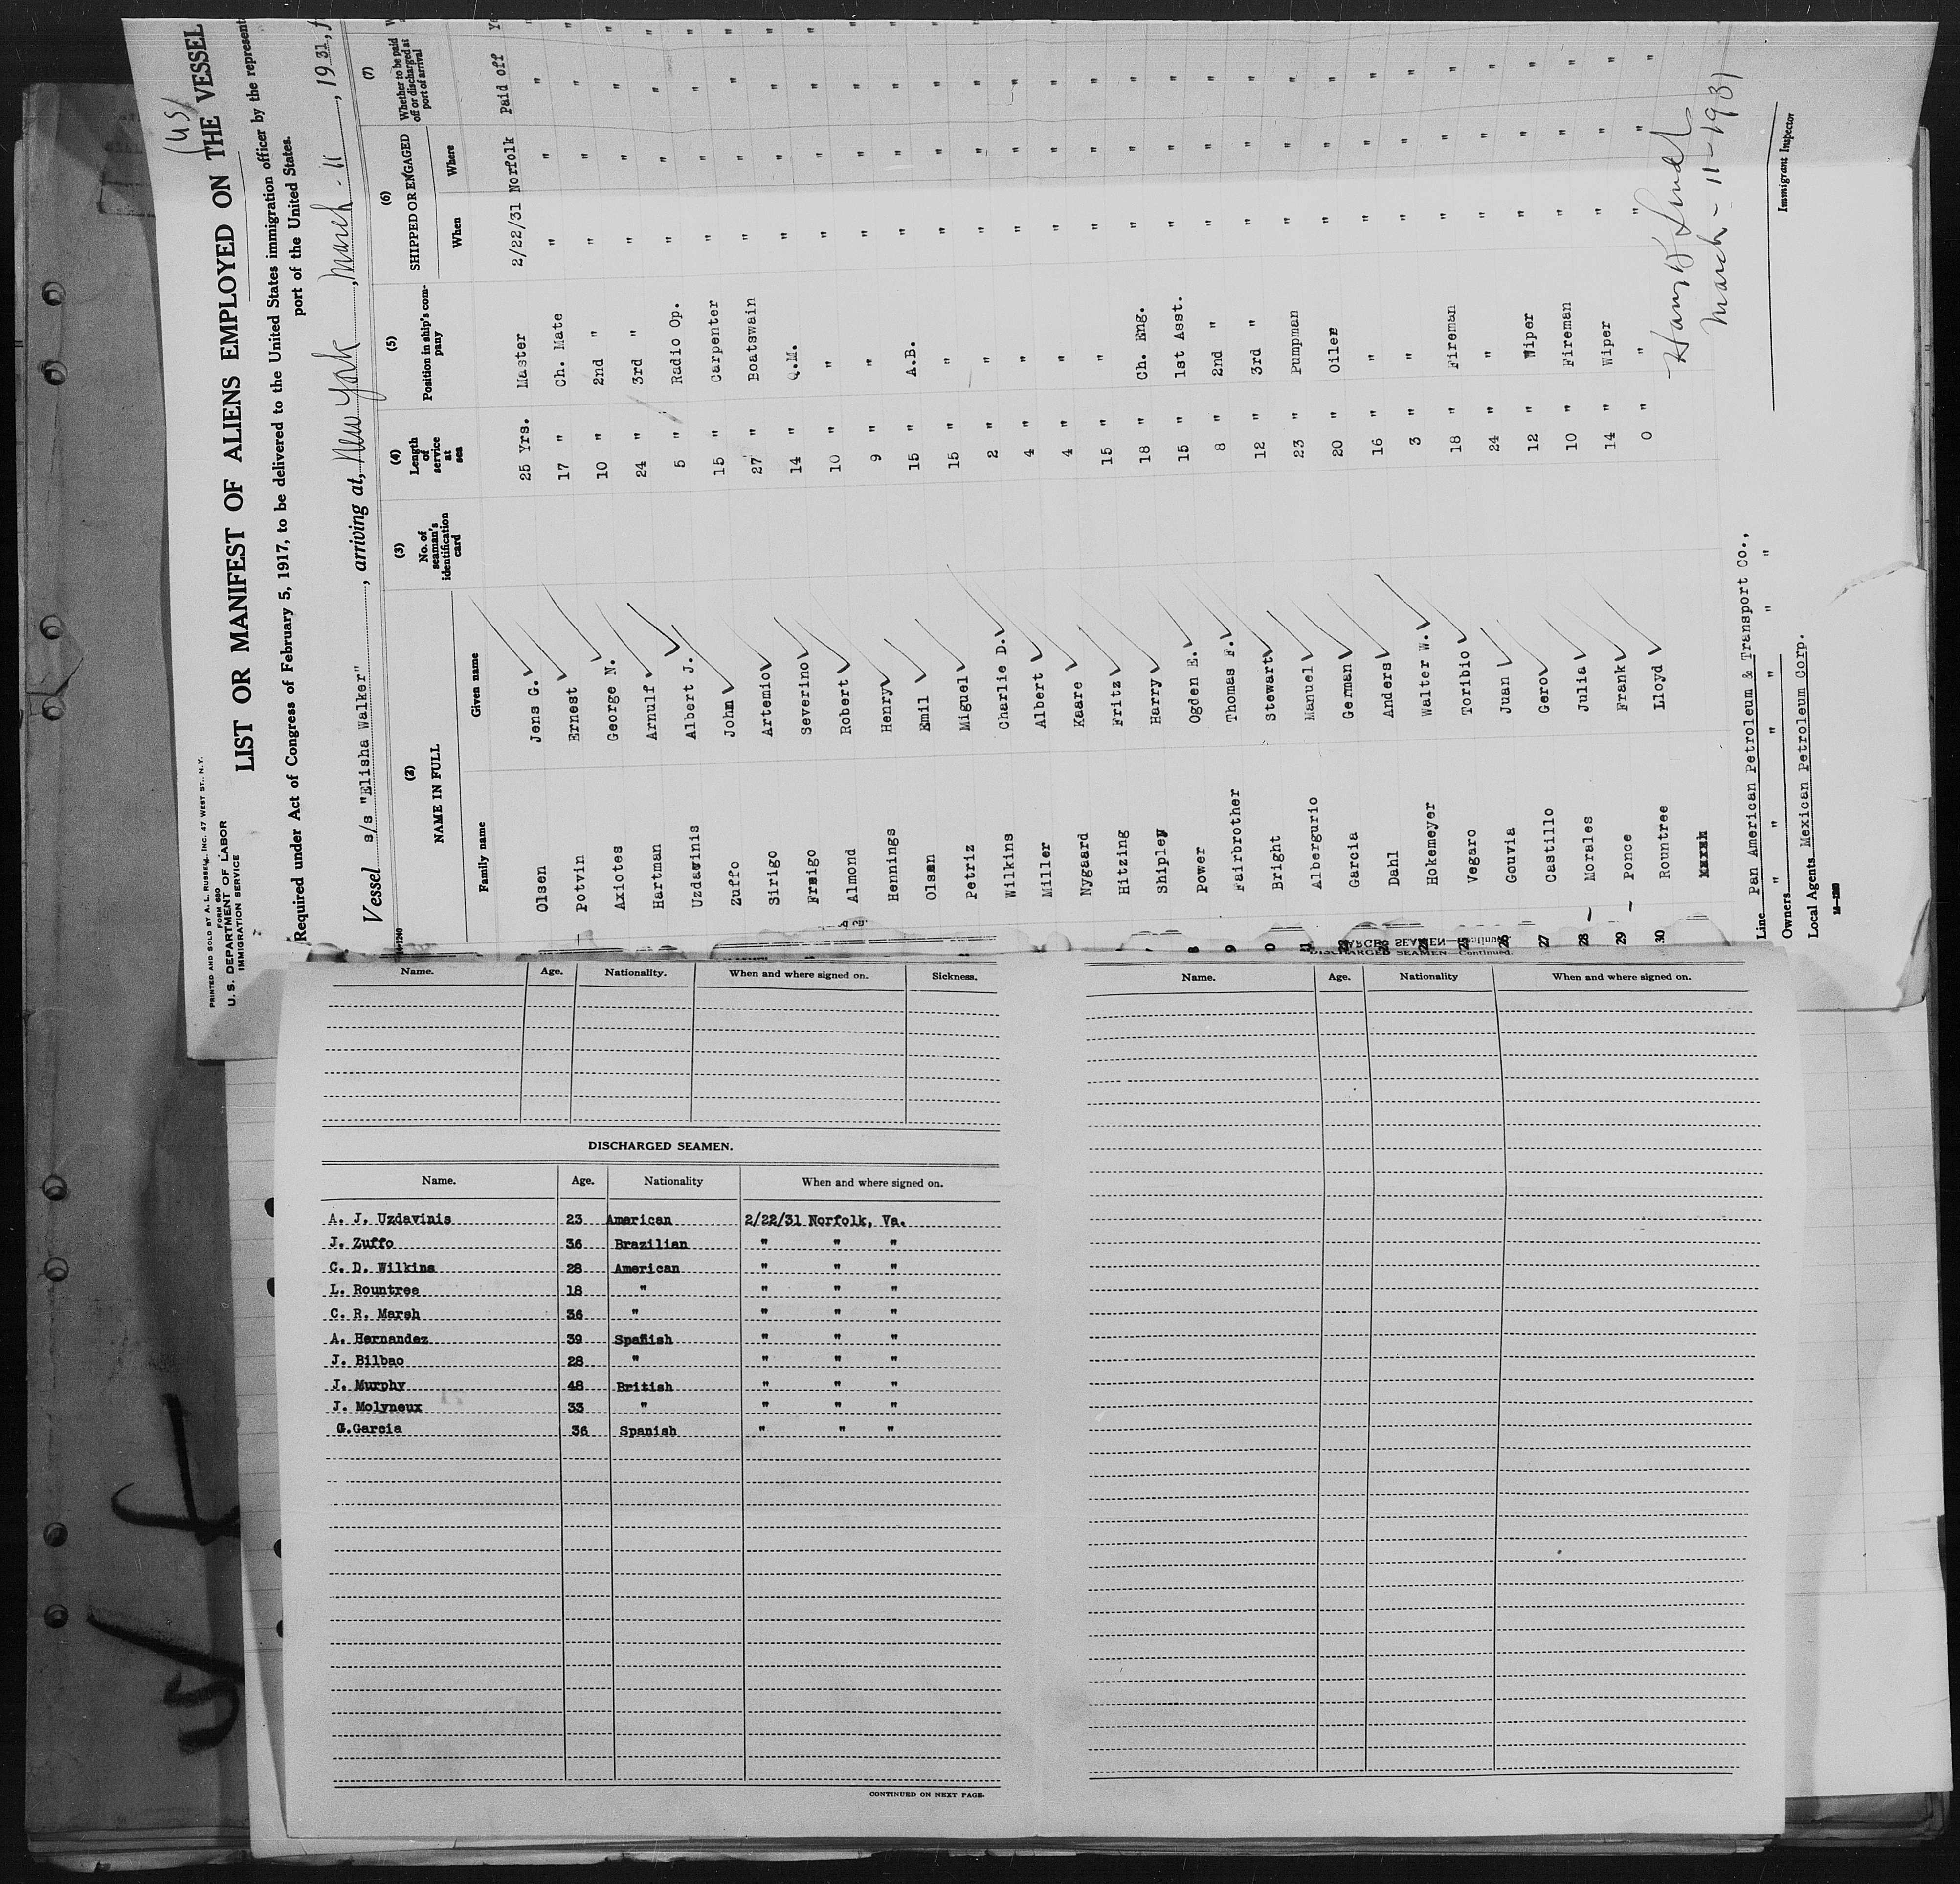 PRINTED AND SOLD BY A. L. RUSSELL, INC. 47 WEST ST., N.Y.
FORM 680
U. S. DEPARTMENT OF LABOR
IMMIGRATION SERVICE
(US)
LIST OR MANIFEST OF ALIENS EMPLOYED ON THE VESSEL
Required under Act of Congress of February 5, 1917, to be delivered to the United States immigration officer by the represent
port of the United States.
Vessel s/s "Elisha Walker", arriving at New York, March - 11, 1931, f
(2) NAME IN FULL (3) No. of seaman's identification card (4) Length of service at sea (5) Position in ship's company (6) SHIPPED OR ENGAGED (7) Whether to be paid off or discharged at port of arrival
Family name Given name When Where
Olsen Jens G. 25 Yrs. Master 2/22/31 Norfolk Paid off Ye
Potvin Ernest 17 " Ch. Mate " " " "
Axiotes George N. 10 " 2nd " " " " "
Hartman Arnulf 24 " 3rd " " " " "
Uzdavinis Albert J. 5 " Radio Op. " " " "
Zuffo John 15 " Carpenter " " " "
Sirigo Artemio 27 " Boatswain " " " "
Freigo Severino 14 " Q.M. " " " "
Almond Robert 10 " " " " "
Hennings Henry 9 " " " " "
Olsen Emil 15 " A.B. " " "
Petriz Miguel 15 " " " " "
Wilkins Charlie D. 2 " " " " "
Miller Albert 4 " " " " "
Nygaard Kaare 4 " " " " "
Hitzing Fritz 15 " " " " "
Shipley Harry 18 " Ch. Eng. " " "
8 Power Ogden E. 15 " 1st Asst. " " "
9 Fairbrother Thomas F. 8 " 2nd " " " "
0 Bright Stewart 12 " 3rd " " " "
Albergurio Manuel 23 " Pumpman " " "
Garcia German 20 " Oiler " " "
Dahl Anders 16 " " " " "
Hokemeyer Walter W. 3 " " " " "
25 Vegaro Toribio 18 " Fireman " " "
26 Gouvia Juan 24 " " " " "
27 Castillo Gero 12 " Wiper " " "
28 Morales Julia 10 " Fireman " " "
29 Ponce Frank 14 " Wiper " " "
30 Rountree Lloyd 0 " " " " "
March - 11-1931
Immigrant Inspector
Line Pan American Petroleum & Transport Co.,
Owners " " " " " "
Local Agents Mexican Petroleum Corp.
Name. Age. Nationality. When and where signed on. Sickness.
DISCHARGED SEAMEN.
Name. Age. Nationality When and where signed on.
A. J. Uzdavinis 23 American 2/22/31 Norfolk, Va.
J. Zuffo 36 Brazilian " " "
C. D. Wilkins 28 American " " "
L. Rountree 18 " " " "
C. R. Marsh 36 " " " "
A. Hernandez 39 Spanish " " "
J. Bilbao 28 " " " "
J. Murphy 48 British " " "
J. Molyneux 33 " " " "
G.Garcia 36 Spanish " " "
CONTINUED ON NEXT PAGE.
DISCHARGED SEAMEN—Continued.
Name. Age. Nationality When and where signed on.